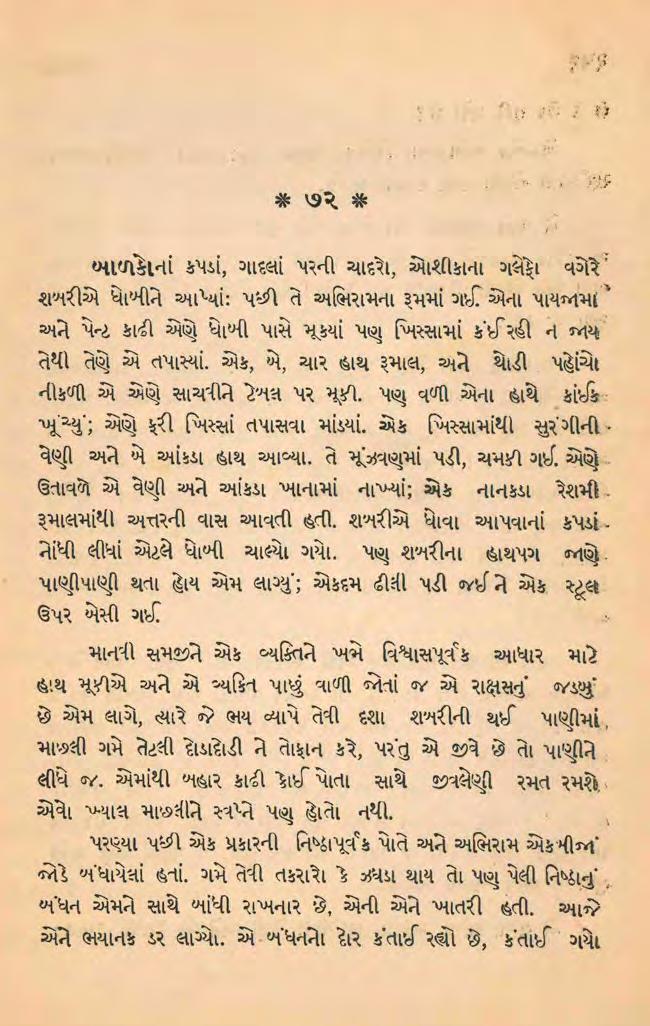 * ૭૨ *
બાળકોનાં કપડાં, ગાદલાં પરની ચાદરો, ઓશીકાના ગલેફો વગેરે
શબરીએ ધોબીને આપ્યાં: પછી તે અભિરામના રૂમમાં ગઈ. એના પાયજામા
અને પેન્ટ કાઢી એણે ધોબી પાસે મૂક્યાં પણ ખિસ્સામાં કંઈ રહી ન જાય
તેથી તેણે એ તપાસ્યાં. એક, બે, ચાર હાથ રૂમાલ, અને થોડી પહોંચો
નીકળી એ એણે સાચવીને ટેબલ પર મૂકી. પણ વળી એના હાથે કાંઈક
ખૂંચ્યું; એણે ફરી ખિસ્સાં તપાસવા માંડયાં. એક ખિસ્સામાંથી સુરંગીની
વેણી અને બે આંકડા હાથ આવ્યા. તે મૂંઝવણમાં પડી, ચમકી ગઈ. એણે
ઉતાવળે એ વેણી અને આંકડા ખાનામાં નાખ્યાં; એક નાનકડા રેશમી
રૂમાલમાંથી અત્તરની વાસ આવતી હતી. શબરીએ ધોવા આપવાનાં કપડાં
નોંધી લીધાં એટલે ધોબી ચાલ્યો ગયો. પણ શબરીના હાથપગ જાણે
પાણીપાણી થતા હોય એમ લાગ્યું; એકદમ ઢીલી પડી જઈ ને એક સ્ટૂલ
ઉપર બેસી ગઈ.
માનવી સમજીને એક વ્યક્તિને ખભે વિશ્વાસપૂર્વક આધાર માટે
હાથ મૂકીએ અને એ વ્યક્તિ પાછું વાળી જોતાં જ એ રાક્ષસનું જડબું
છે એમ લાગે, ત્યારે જે ભય વ્યાપે તેવી દશા શબરીની થઈ પાણીમાં
માછલી ગમે તેટલી દોડાદોડી ને તોફાન કરે, પરંતુ એ જીવે છે તો પાણીને
લીધે જ. એમાંથી બહાર કાઢી કોઈ પોતા સાથે જીવલેણી રમત રમશે
એવો ખ્યાલ માછલીને સ્વપ્ને પણ હોતો નથી.
પરણ્યા પછી એક પ્રકારની નિષ્ઠાપૂર્વક પોતે અને અભિરામ એકબીજાં
જોડે બંધાયેલાં હતાં. ગમે તેવી તકરારો કે ઝઘડા થાય તો પણ પેલી નિષ્ઠાનું
બંધન એમને સાથે બાંધી રાખનાર છે, એની એને ખાતરી હતી. આજે
એને ભયાનક ડર લાગ્યો. એ બંધનનો દોર કંતાઈ રહ્યો છે, કંતાઈ ગયો